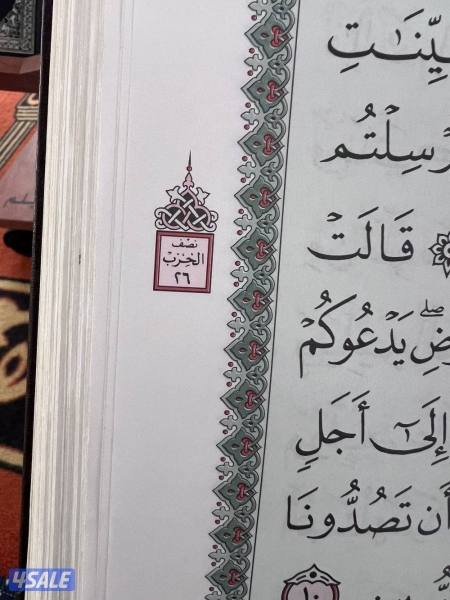 نصف
الحزب
٢٦
يِّنَٰتِ
رْسِلْتُم
قَالَتْ
رْضِۖ يَدْعُوكُمْ
إِلَىٰٓ أَجَلٍ
أَن تَصُدُّونَا
١٠
4SALE